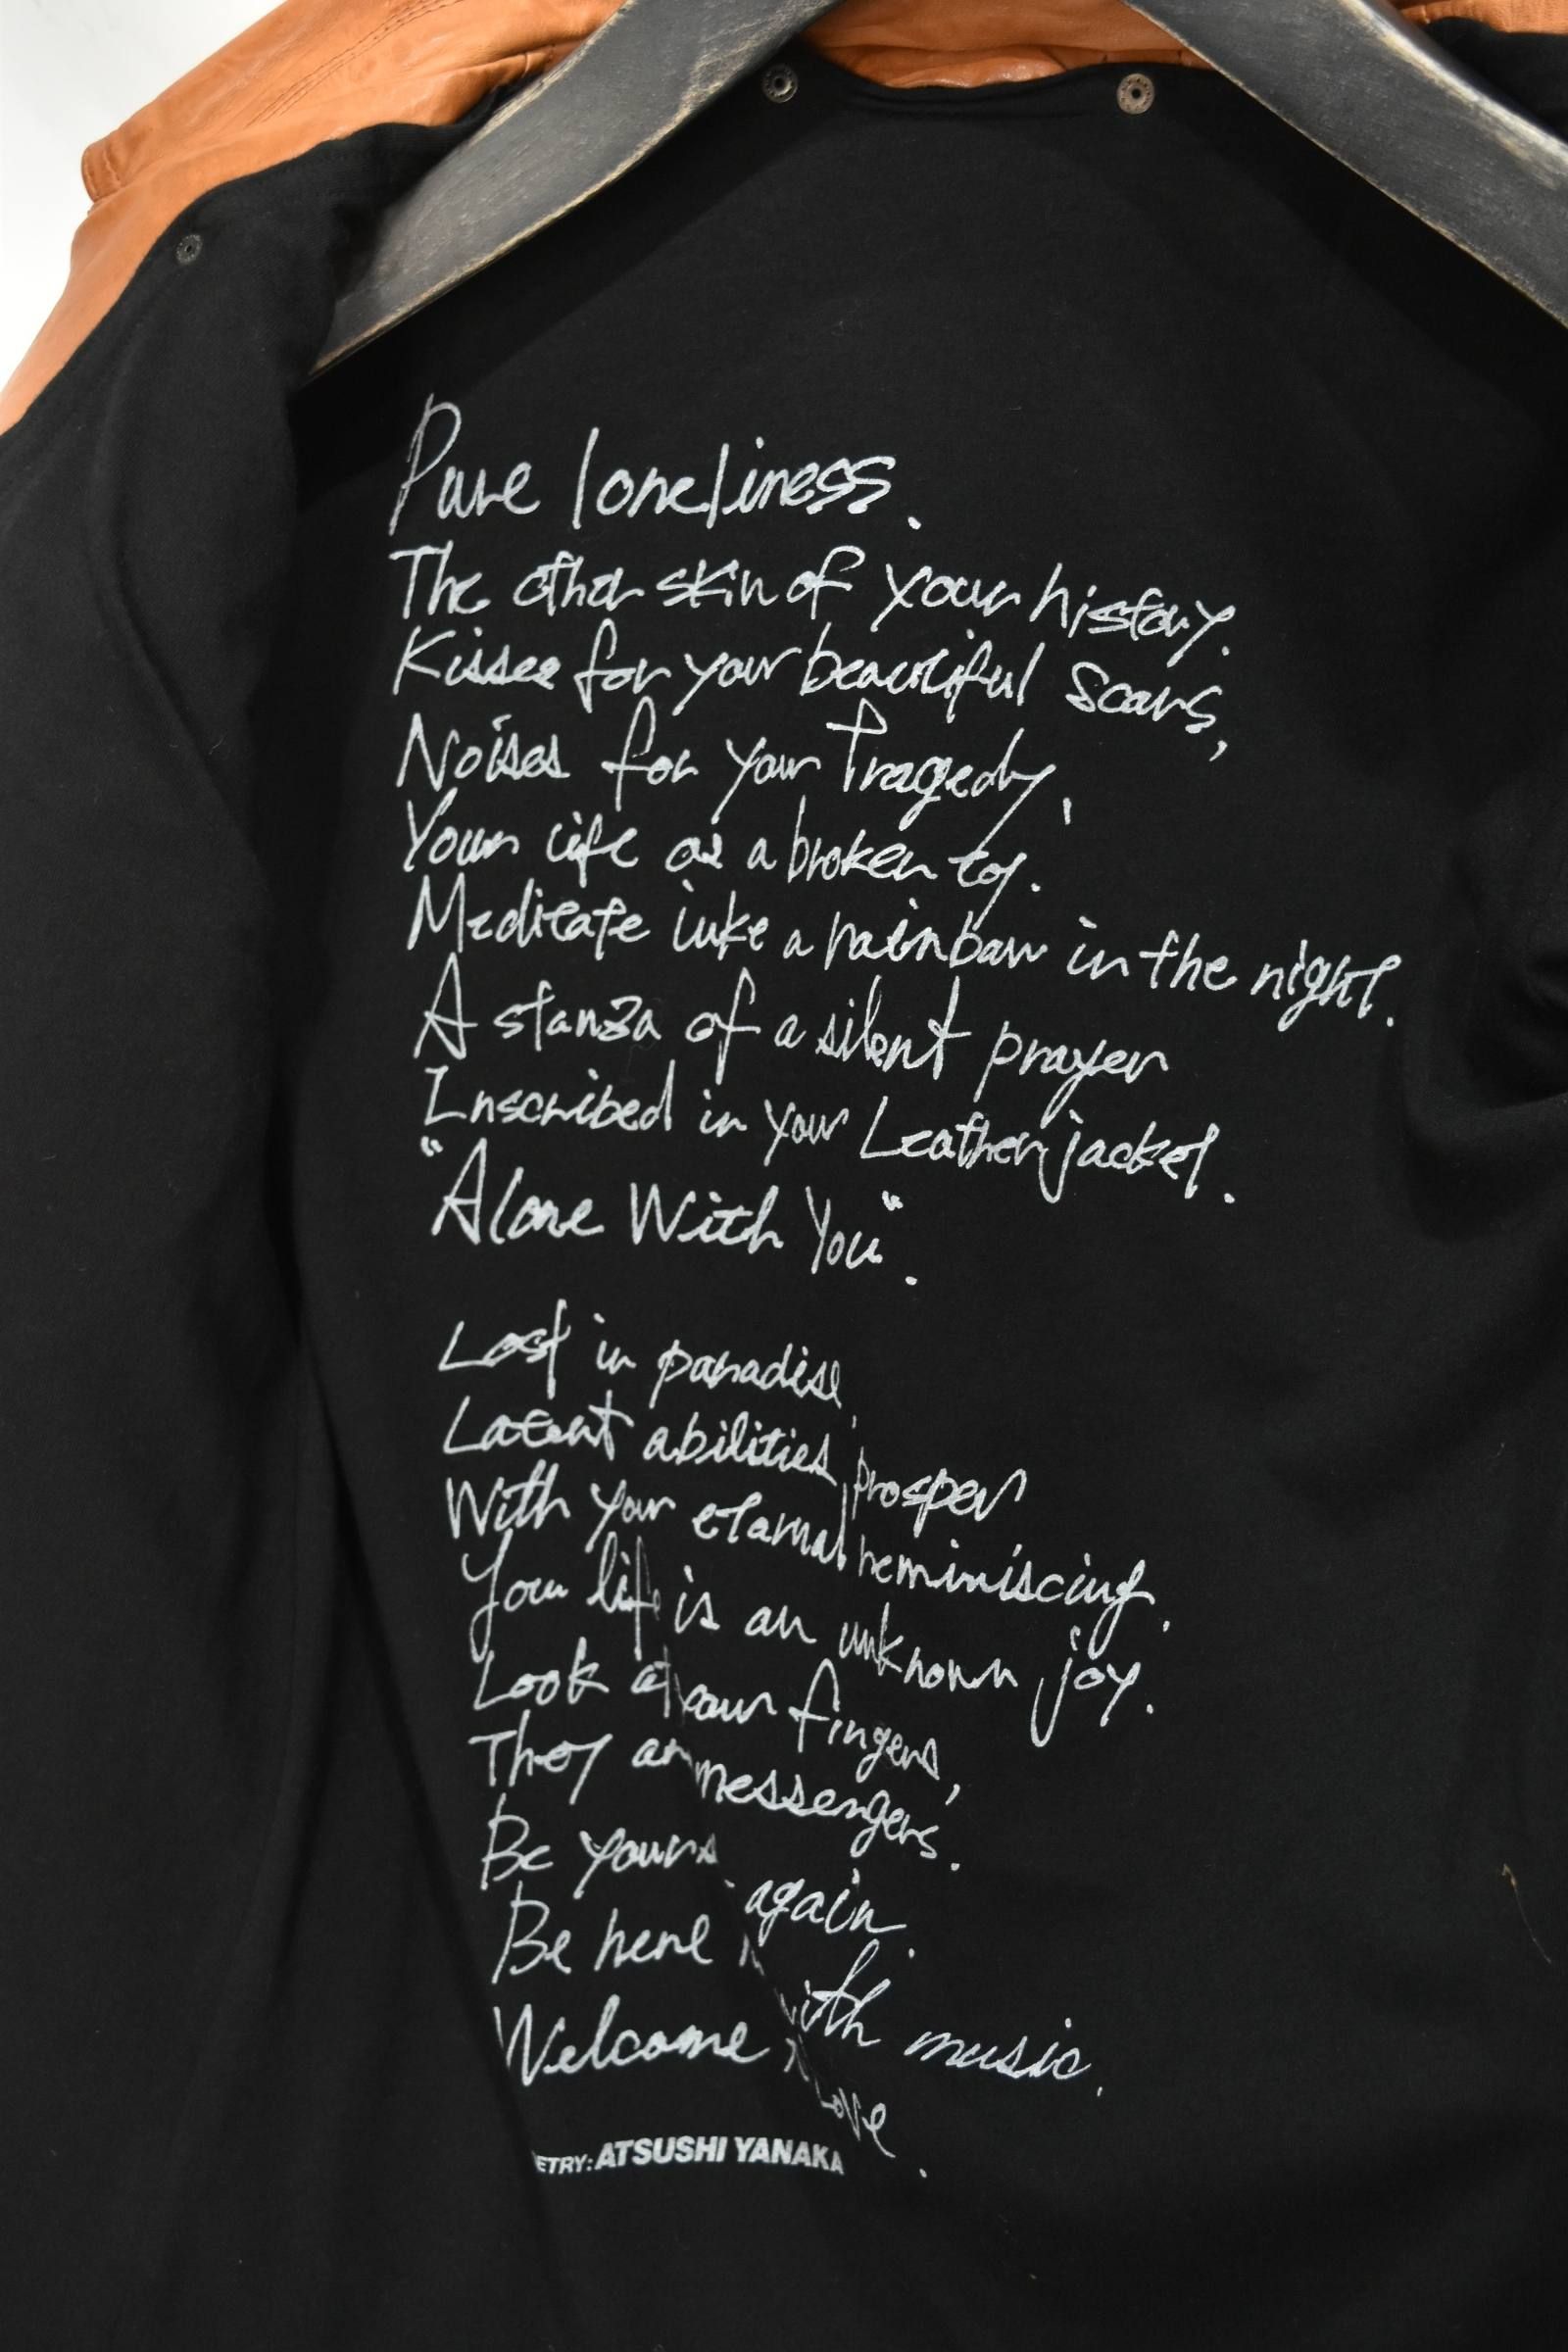 Pure loneliness.
The other skin of your history.
Kisses for your beautiful scars,
Noises for your Tragedy,
Your life as a broken toy.
Meditate like a rainbow in the night.
A stanza of a silent prayer
Inscribed in your Leather jacket.
"Alone With You".
Lost in paradise,
Latent abilities prosper
With your eternal reminiscing.
Your life is an unknown joy.
Look at your fingers,
They are messengers.
Be yours again.
Be here with music.
Welcome Love.
ETRY: ATSUSHI YANAKA